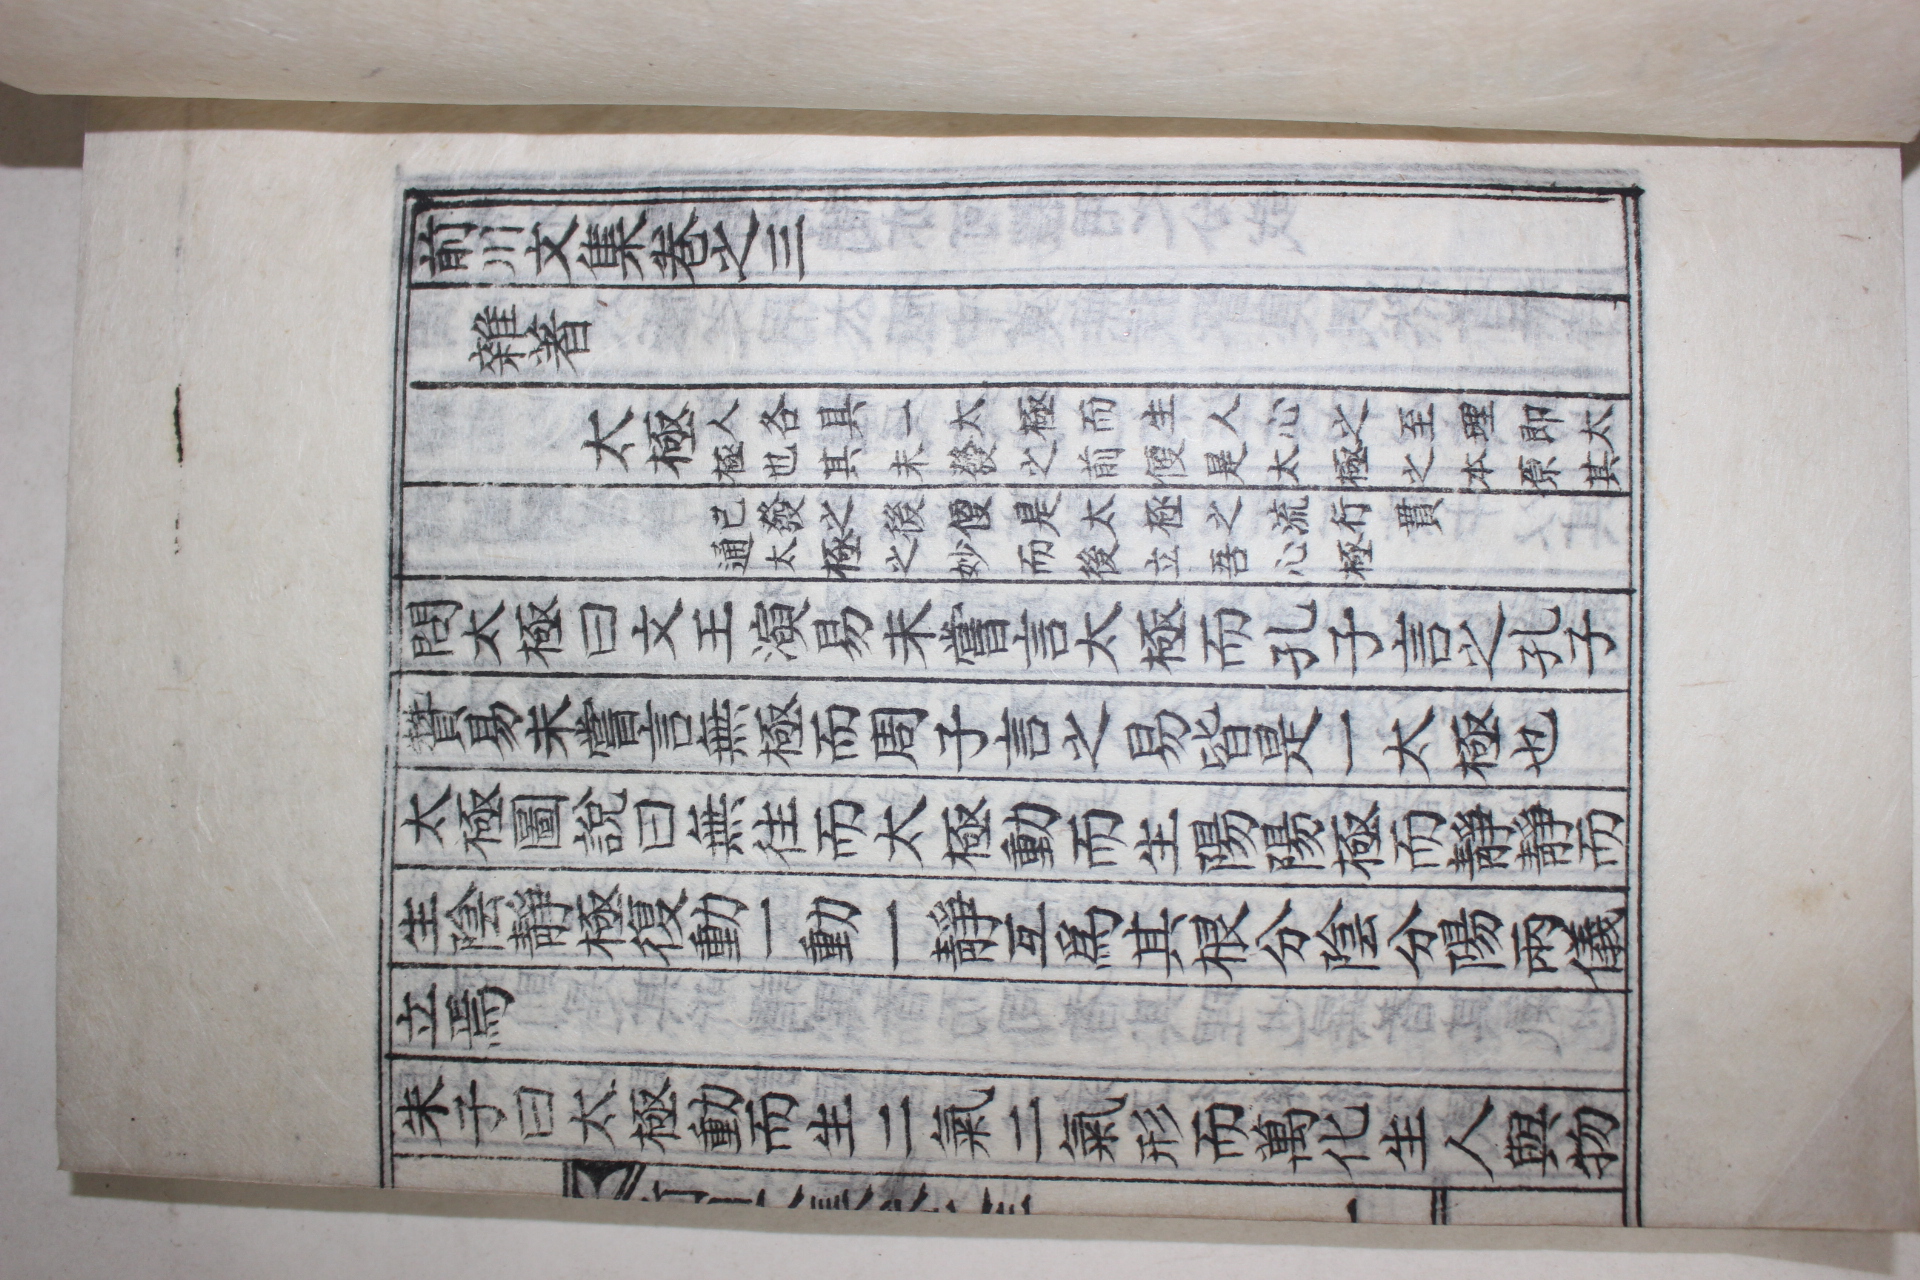 前川文集卷之三
雜著
太極
人各具一太極而生人心之至理即太
極也其未發之前便是太極之本原其
已發之後便是太極之流行貫
通太極之妙而後立吾心極
問太極曰文王演易未嘗言太極而孔子言之孔子
贊易未嘗言無極而周子言之易皆是一太極也
太極圖說曰無往而太極動而生陽陽極而靜靜而
生陰靜極復動一動一靜互爲其根分陰分陽兩儀
立焉
朱子曰太極動而生二氣二氣形而萬化生人與物